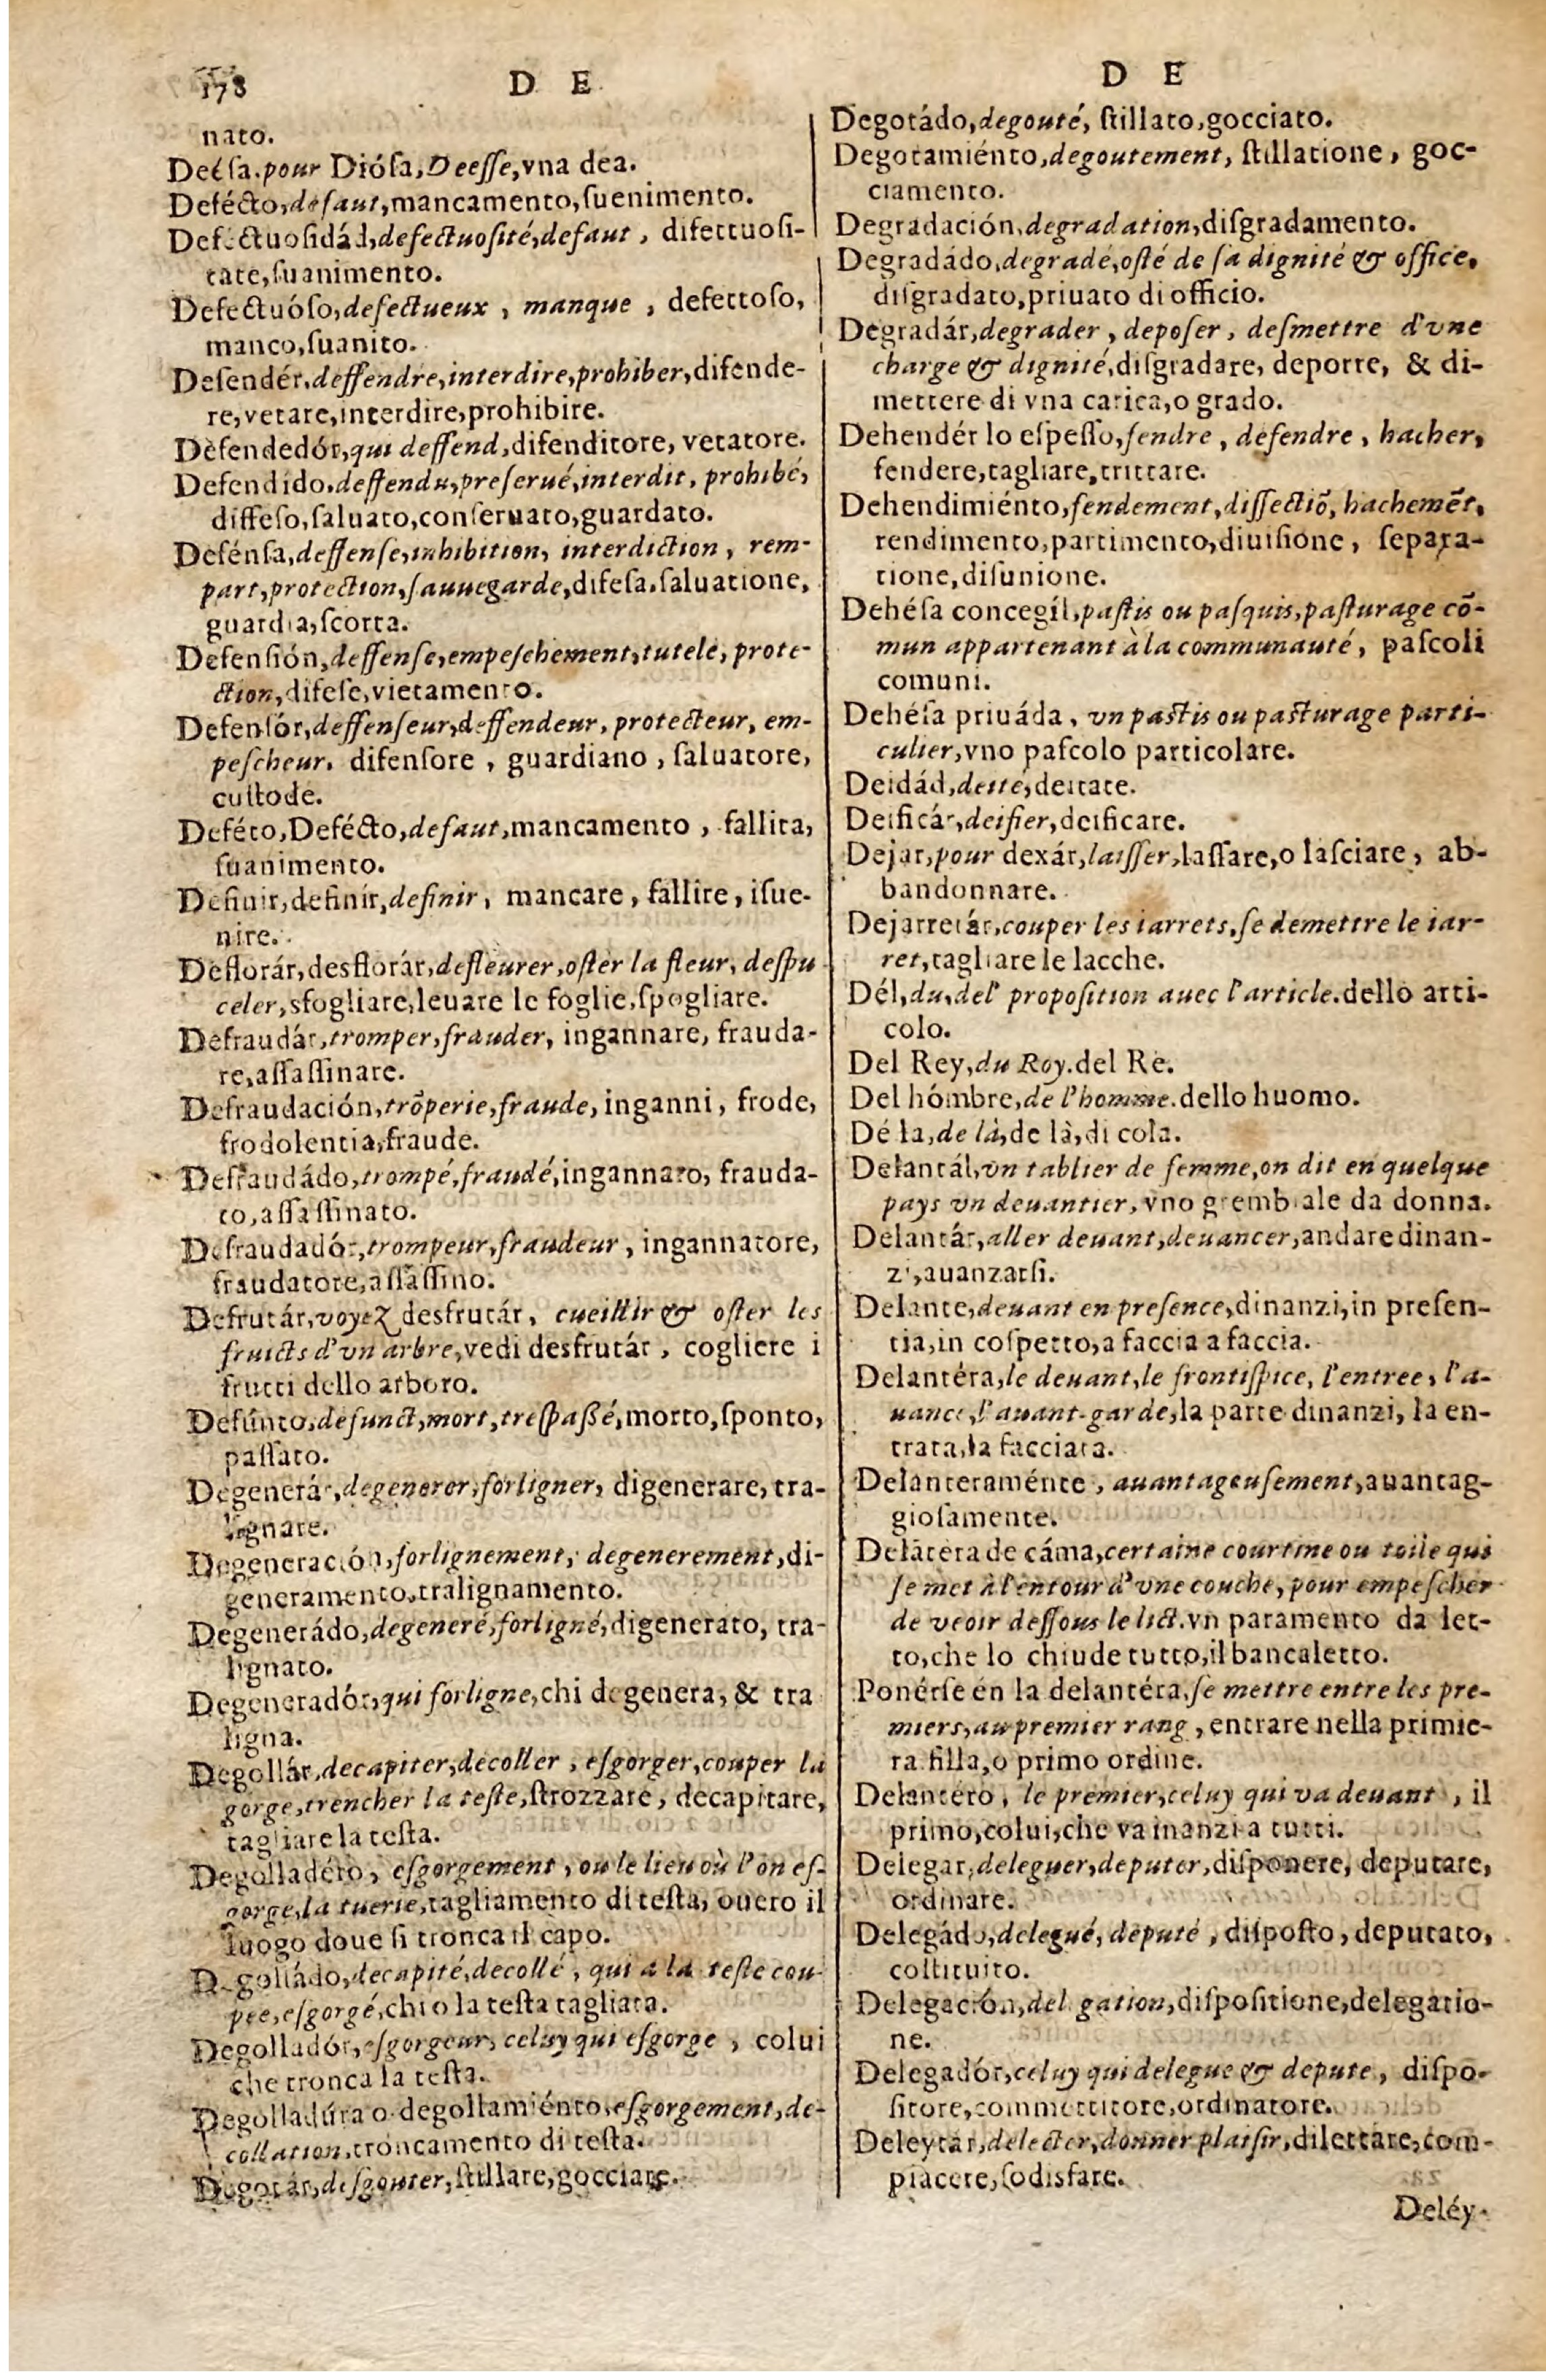 178 D E
nato.
Deésa. pour Diósa, Deesse, vna dea.
Deféćto, defaut, mancamento, suenimento.
Defectuosidád, defectuosité, defaut, difettuosi-
tate, suanimento.
Defectuóso, defectueux, manque, defettoso,
manco, suanito.
Defendér, deffendre, interdire, prohiber, difende-
re, vetare, interdire, prohibire.
Defendedór, qui deffend, difenditore, vetatore.
Defendído, deffendu, preserué, interdit, prohibé,
diffeso, saluato, conseruato, guardato.
Defénsa, deffense, inhibition, interdiction, rem-
part, protection, sauuegarde, difesa, saluatione,
guardia, scorta.
Defensión, deffense, empeschement, tutele, prote-
ction, difese, vietamento.
Defensór, deffenseur, deffendeur, protecteur, em-
pescheur. difensore, guardiano, saluatore,
custode.
Deféto, Defécto, defaut, mancamento, fallita,
suanimento.
Definir, definír, definir, mancare, fallire, isue-
nire.
Deflorár, desflorár, defleurer, oster la fleur, despu
celer, sfogliare, leuare le foglie, spogliare.
Defraudár, tromper, frauder, ingannare, frauda-
re, assassinare.
Defraudación, trõperie, fraude, inganni, frode,
frodolentia, fraude.
Defraudádo, trompé, fraudé, ingannato, frauda-
to, assassinato.
Defraudadór, trompeur, fraudeur, ingannatore,
fraudatore, assassino.
Defrutár, voyez desfrutár, cueillir & oster les
fruicts d'vn arbre, vedi desfrutár, cogliere i
frutti dello arboro.
Defúnto, defunct, mort, trespaßé, morto, sponto,
passato.
Degenerár, degenerer, forligner, digenerare, tra-
lignare.
Degeneración, forlignement, degenerement, di-
generamento, tralignamento.
Degenerádo, degeneré, forligné, digenerato, tra-
lignato.
Degeneradór, qui forligne, chi degenera, & tra
ligna.
Degollár, decapiter, decoller, esgorger, couper la
gorge, trencher la teste, strozzare, decapitare,
tagliare la testa.
Degolladéro, esgorgement, ou le lieu où l'on es-
gorge, la tuerie, tagliamento di testa, ouero il
luogo doue si tronca il capo.
Degolládo, decapité, decollé, qui a la teste cou-
pee, esgorgé, chi o la testa tagliata.
Degolladór, esgorgeur, celuy qui esgorge, colui
che tronca la testa.
Degolladúra o degollamiénto, esgorgement, de-
collation, troncamento di testa.
Degotár, desgouter, stillare, gocciare.
D E
Degotádo, degouté, stillato, gocciato.
Degotamiénto, degoutement, stillatione, goc-
ciamento.
Degradación, degradation, disgradamento.
Degradádo, degradé, osté de sa dignité & office,
disgradato, priuato di officio.
Degradár, degrader, deposer, desmettre d'vne
charge & dignité, disgradare, deporre, & di-
mettere di vna carica, o grado.
Dehendér lo espesso, fendre, defendre, hacher,
fendere, tagliare, trittare.
Dehendimiénto, fendement, dissectiõ, hachemẽt,
rendimento, partimento, diuisione, separa-
tione, disunione.
Dehésa concegíl, pastis ou pasquis, pasturage cõ-
mun appartenant à la communauté, pascoli
comuni.
Dehésa priuáda, vn pastis ou pasturage parti-
culier, vno pascolo particolare.
Deidád, deité, deitate.
Deificár, deifier, deificare.
Dejar, pour dexár, laisser, lassare, o lasciare, ab-
bandonnare.
Dejarretár, couper les iarrets, se demettre le iar-
ret, tagliare le lacche.
Dél, du, del' proposition auec l'article. dello arti-
colo.
Del Rey, du Roy. del Re.
Del hómbre, de l'homme. dello huomo.
Dé la, de là, de là, di cola.
Delantál, vn tablier de femme, on dit en quelque
pays vn deuantier, vno grembiale da donna.
Delantár, aller deuant, deuancer, andare dinan-
zi, auanzarsi.
Delante, deuant en presence, dinanzi, in presen-
tia, in cospetto, a faccia a faccia.
Delantéra, le deuant, le frontispice, l'entree, l'a-
uance, l'auant-garde, la parte dinanzi, la en-
trata, la facciata.
Delanteraménte, auantageusement, auantag-
giosamente.
Delãtera de cáma, certaine courtine ou toile qui
se met à l'entour d'vne couche, pour empescher
de veoir dessous le lict. vn paramento da let-
to, che lo chiude tutto, il bancaletto.
Ponérse én la delantéra, se mettre entre les pre-
miers, au premier rang, entrare nella primie-
ra filla, o primo ordine.
Delantéro, le premier, celuy qui va deuant, il
primo, colui, che va inanzi a tutti.
Delegar, deleguer, deputer, disponere, deputare,
ordinare.
Delegádo, delegué, deputé, disposto, deputato,
costituito.
Delegación, delegation, dispositione, delegatio-
ne.
Delegadór, celuy qui delegue & depute, dispo-
sitore, commettitore, ordinatore.
Deleytár, delecter, donner plaisir, dilettare, com-
piacere, sodisfare.
Deléy-